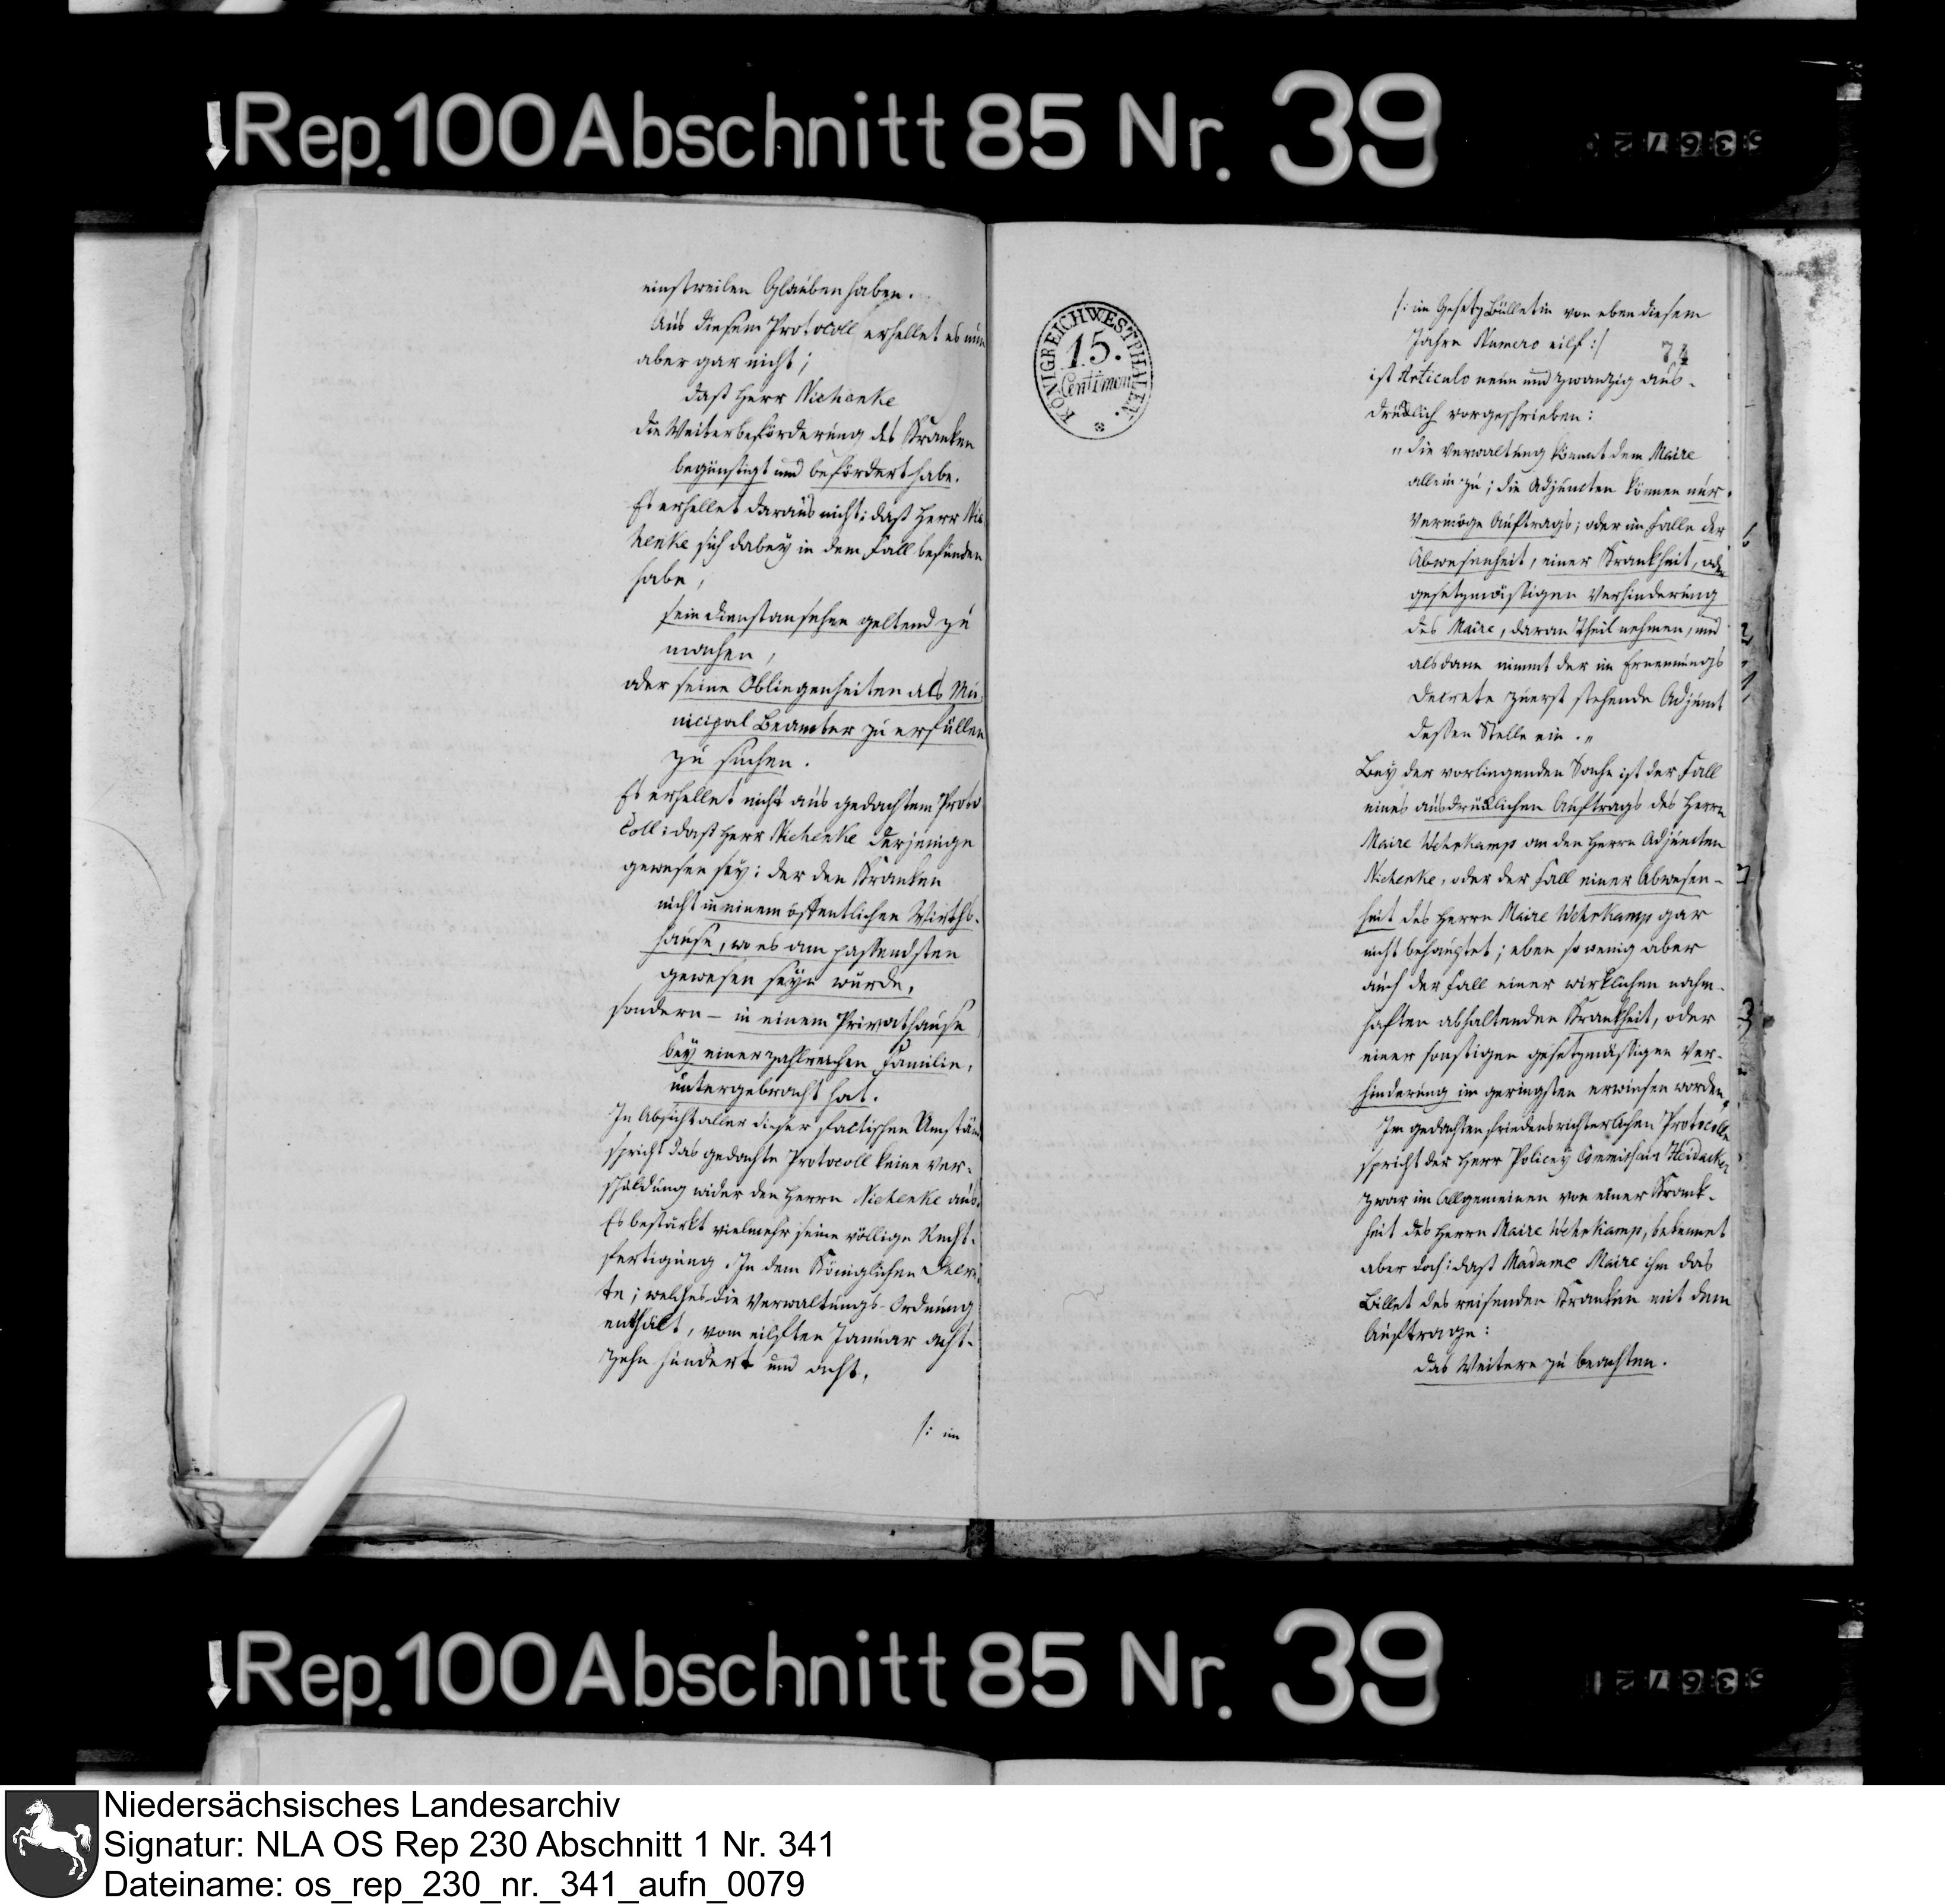 Rep. 100 Abschnitt 85 Nr. 39
einstweilen Glauben haben.
Aus diesem Protocoll erhellet es nun
aber gar nicht;
daß Herr Niehenke
die Weiterbeförderung des Kranken
begünstigt und befördert habe.
Es erhellet daraus nicht: daß Herr Nie
henke sich dabey in dem Fall befunden
habe,
sein Dienstansehen geltend zu
machen,
oder seine Obliegenheiten als Mu-
nicipal Beamter zu erfüllen
zu suchen.
Es erhellet nicht aus gedachtem Proto
coll: daß Herr Niehenke derjenige
gewesen sey: der den Kranken
nicht in einem öffentlichen Wirths-
hause, wo es am passendsten
gewesen seyn würde,
sondern – in einem Privathause
bey einer zahlreichen Familie,
untergebracht hat.
In Absicht aller dieser factischen Umstän
spricht das gedachte Protocoll keine Ver-
schuldung wider den Herrn Niehenke aus.
Es bestärkt vielmehr seine völlige Recht-
fertigung. In dem Königlichen Decre-
te; welches die Verwaltungs-Ordnung
enthält, vom eilften Januar acht-
zehn hundert und acht,
/: im
KÖNIGREICH WESTPHALEN.
15.
Centimen
/: im Gesetz Bülletin von eben diesem
Jahre Numero eilf :/
74
ist Articulo neun und zwanzig aus-
drücklich vorgeschrieben:
„die Verwaltung kömmt dem Maire
allein zu; die Adjuncten können nur
vermöge Auftrags; oder im Falle der
Abwesenheit, einer Krankheit, oder
gesetzmässigen Verhinderung
des Maire, daran Theil nehmen, und
alsdann nimmt der im Ernennungs
Decrete zuerst stehende Adjunct
dessen Stelle ein.„
Bey der vorliegenden Sache ist der Fall
eines ausdrücklichen Auftrags des Herrn
Maire Wehrkamp an den Herrn Adjuncten
Niehenke, oder der Fall einer Abwesen-
heit des Herrn Maire Wehrkamp gar
nicht behauptet; eben so wenig aber
auch der Fall einer wirklichen nahm-
haften abhaltenden Krankheit, oder
einer sonstigen gesetzmässigen Ver-
hinderung im geringsten erwiesen worden.
Im gedachten friedensrichterlichen Protocolle
spricht der Herr Policey Commissair Heidacker
zwar im Allgemeinen von einer Krank-
heit des Herrn Maire Wehrkamp, bekennet
aber doch: daß Madame Maire ihm das
Billet des reisenden Kranken mit dem
Auftrage:
das Weitere zu beachten.
Rep. 100 Abschnitt 85 Nr. 39
Niedersächsisches Landesarchiv
Signatur: NLA OS Rep 230 Abschnitt 1 Nr. 341
Dateiname: os_rep_230_nr._341_aufn_0079